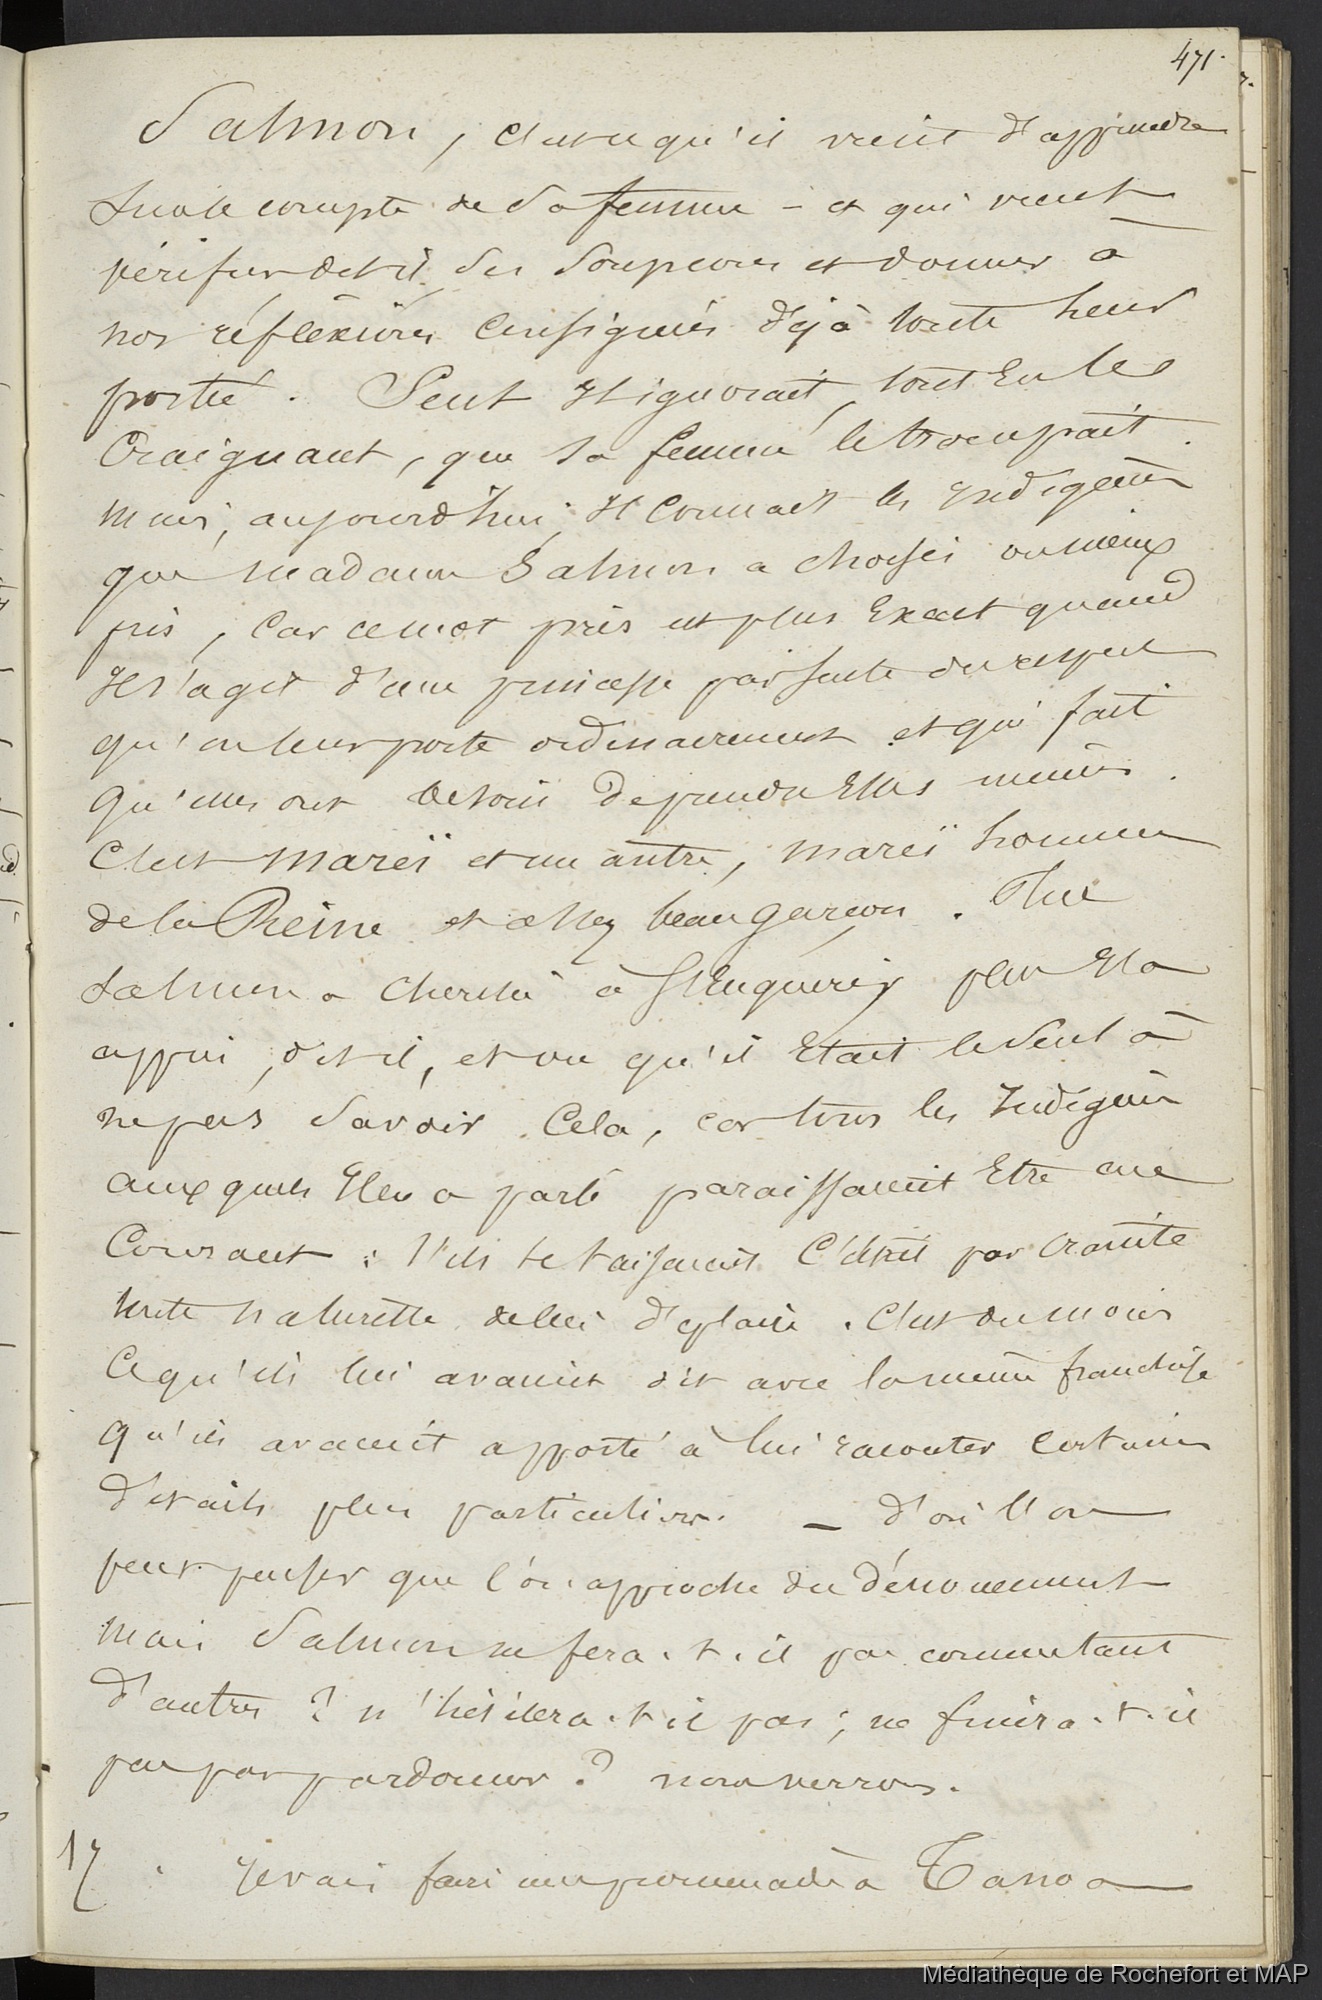 471.
Salmon, c'est ce qu'il vient d'apprendre
sur le compte de sa femme – et qui vient
vérifier dit-il ses soupçons et donner à
nos réfléxions consignées déjà toute leur
portée. Seul Il ignorait, tout en le
craignant, que sa femme le trompait.
mais, aujourd'hui, Il connait les Indigènes
que madame Salmon a choisi ou mieux
pris, car ce mot pris est plus Exact quand
Il s'agit d'une princesse par suite du respect
qu'on leur porte ordinairement et qui fait
qu'elles ont besoin de prendre Elles mêmes.
C'est mareï et un autre, mareï homme
de la Reine et assez beau garçon.
Salmon a cherché à s'Enquérir
appris, dit-il, et vu qu'il Etait le seul à
ne pas savoir cela, car tous les Indigènes
auxquels Il en a parlé paraissaient Etre au
Courant : s'ils se taisaient c'était par crainte
toute naturelle de lui déplaire. C'est du moins
ce qu'ils lui avaient dit avec la même franchise
qu'ils avaient apporté à lui raconter certains
détails plus particuliers. – d'où l'on
peut penser que l'on approche du dénouement
mais Salmon ne fera-t-il pas comme tant
d'autres ? n'hésitera-t-il pas ; ne finira-t-il
pas par pardonner ? nous verrons.
17 . Je vais faire une promenade à Tanoa
Médiathèque de Rochefort et MAP